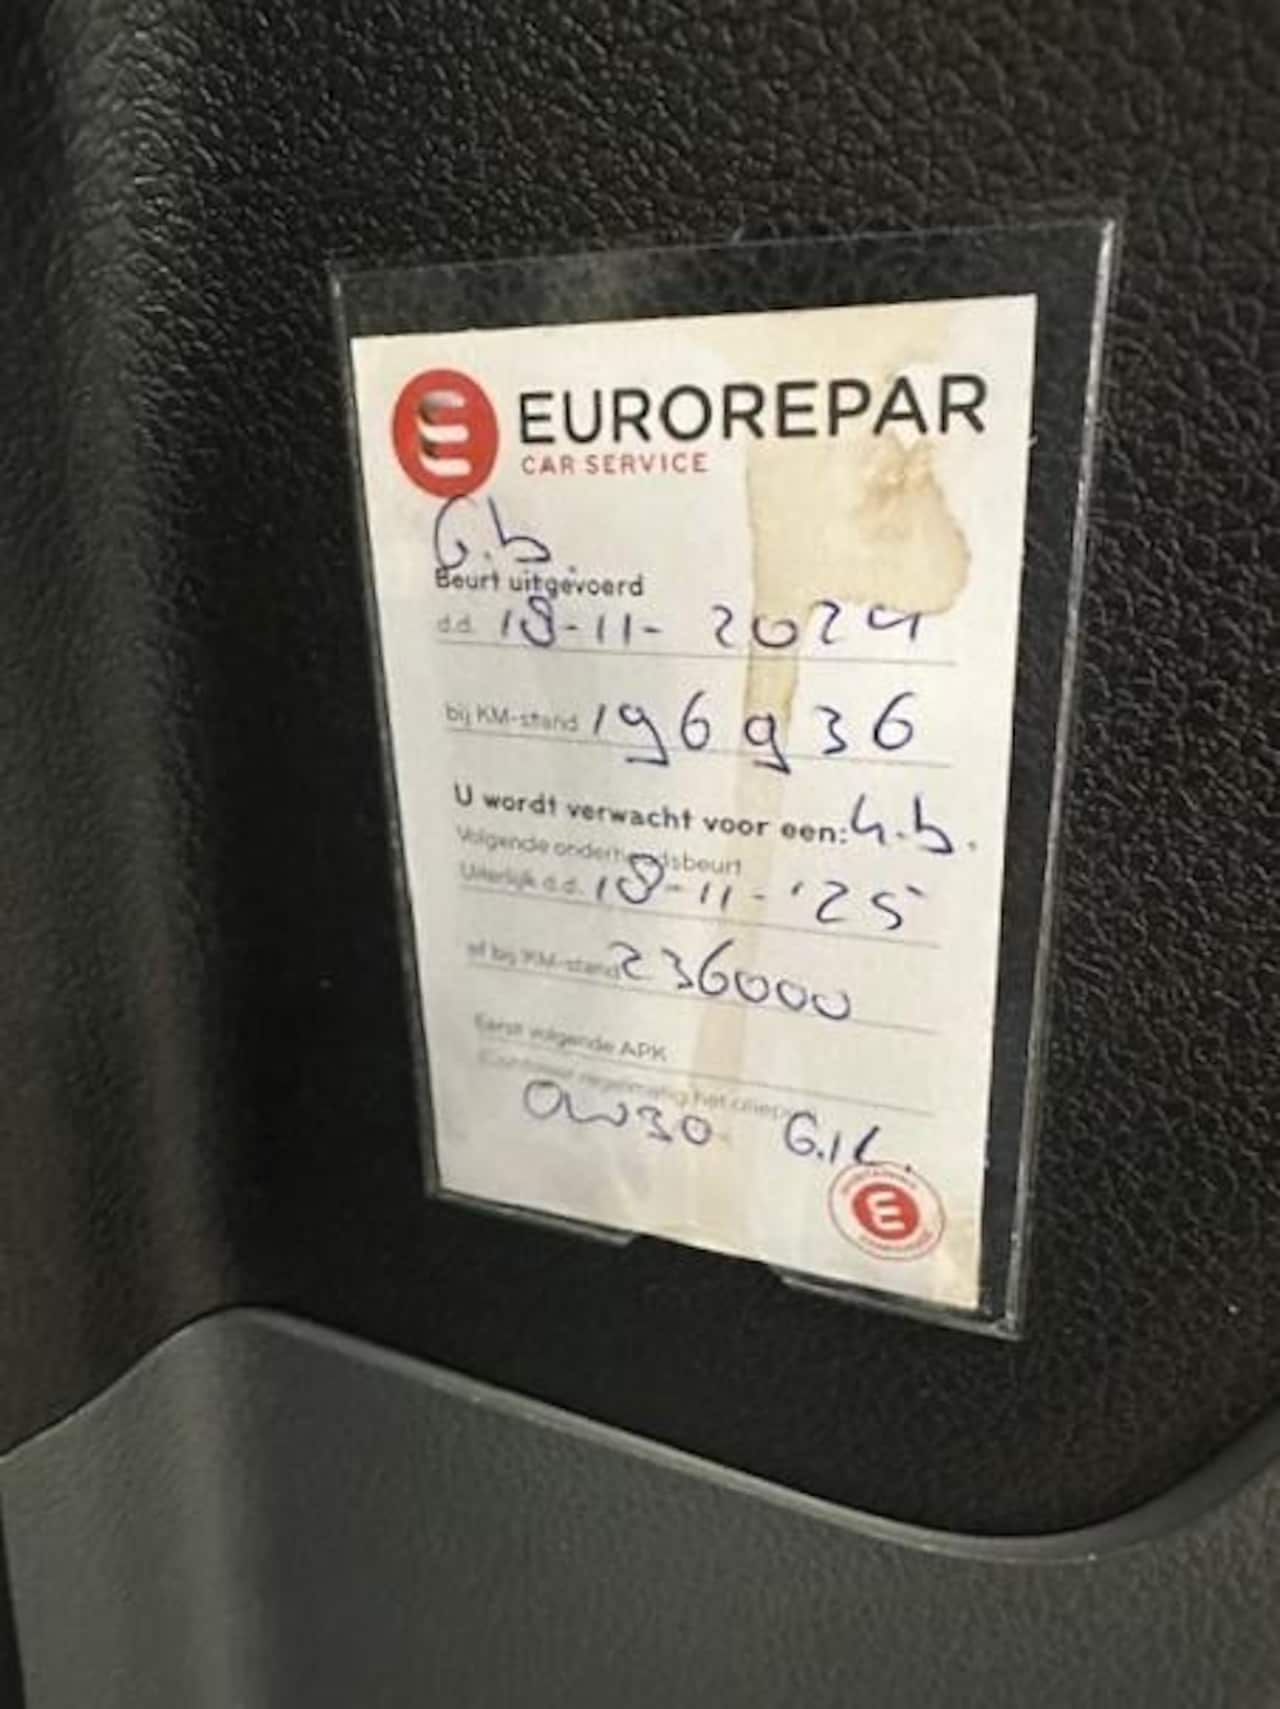 EUROREPAR
CAR SERVICE
G.b.
Beurt uitgevoerd
d.d. 18-11-2024
bij KM-stand 196936
U wordt verwacht voor een: G.b.
Volgende onderhoudsbeurt
Uiterlijk d.d. 18-11-'25
of bij KM-stand 236000
Eerst volgende APK
Controleer regelmatig het oliepeil
0W30 6.1L.